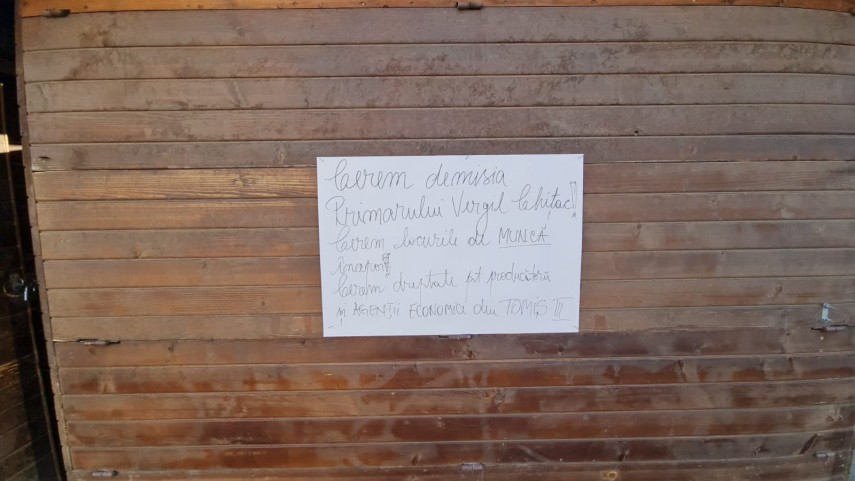 Cerem demisia
Primarului Virgil Chițac!
Cerem locurile de MUNCĂ
înapoi!
Cerem dreptate pt producătorii
și AGENȚII ECONOMICI din TOMIS III